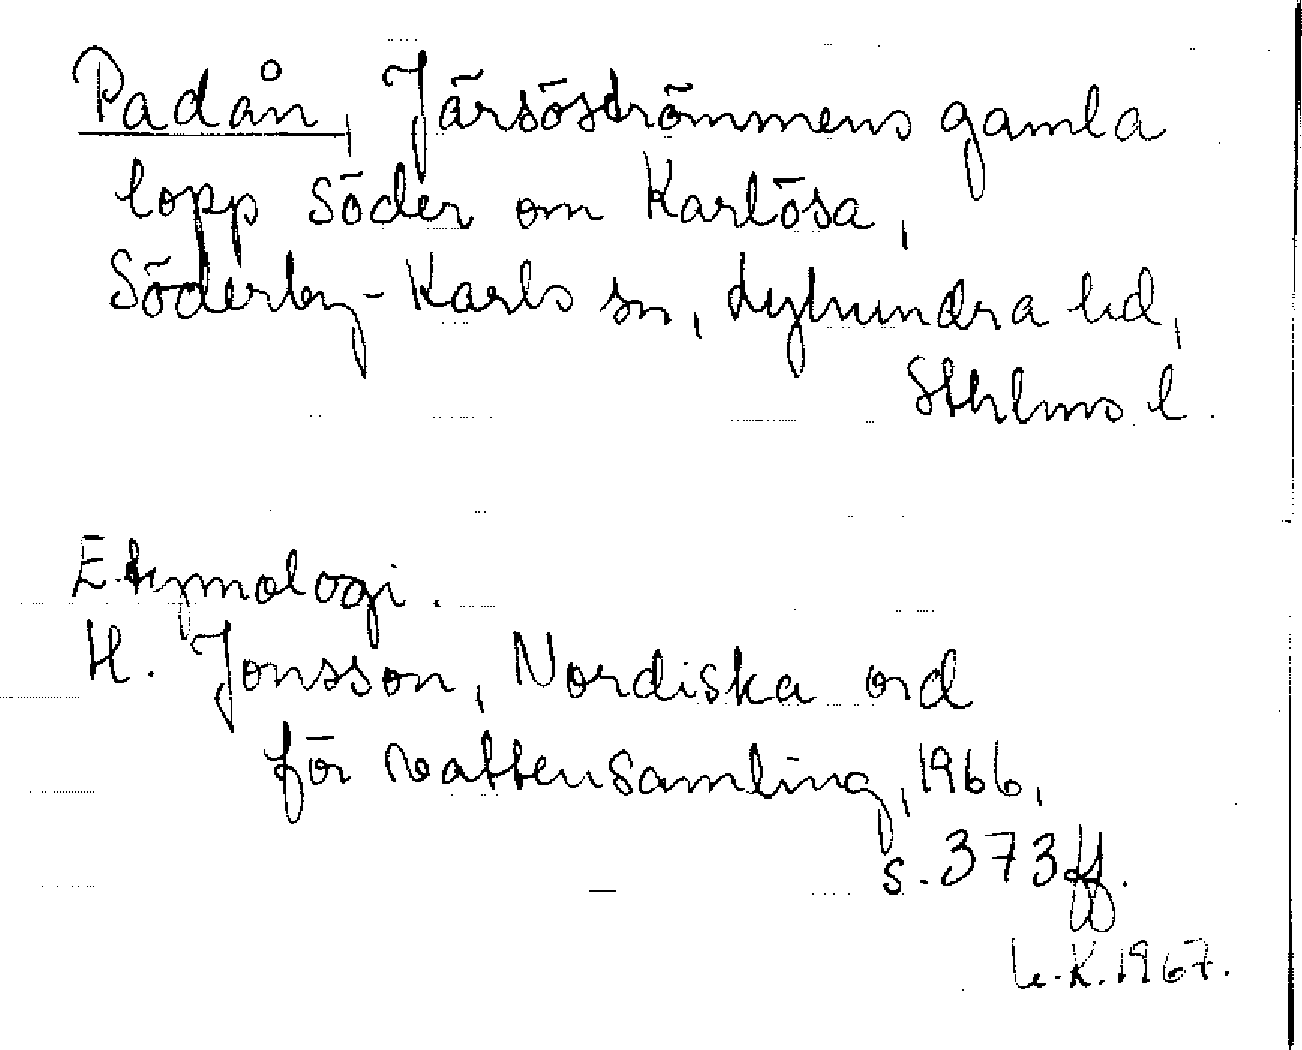 Padån, Järsöströmmens gamla
lopp söder om Karlösa,
Söderby-Karls sn, Lyhundra hd,
Sthlms l.
Etymologi.
H. Jonsson, Nordiska ord
för vattensamling, 1966,
s. 373 ff.
L.K. 1967.